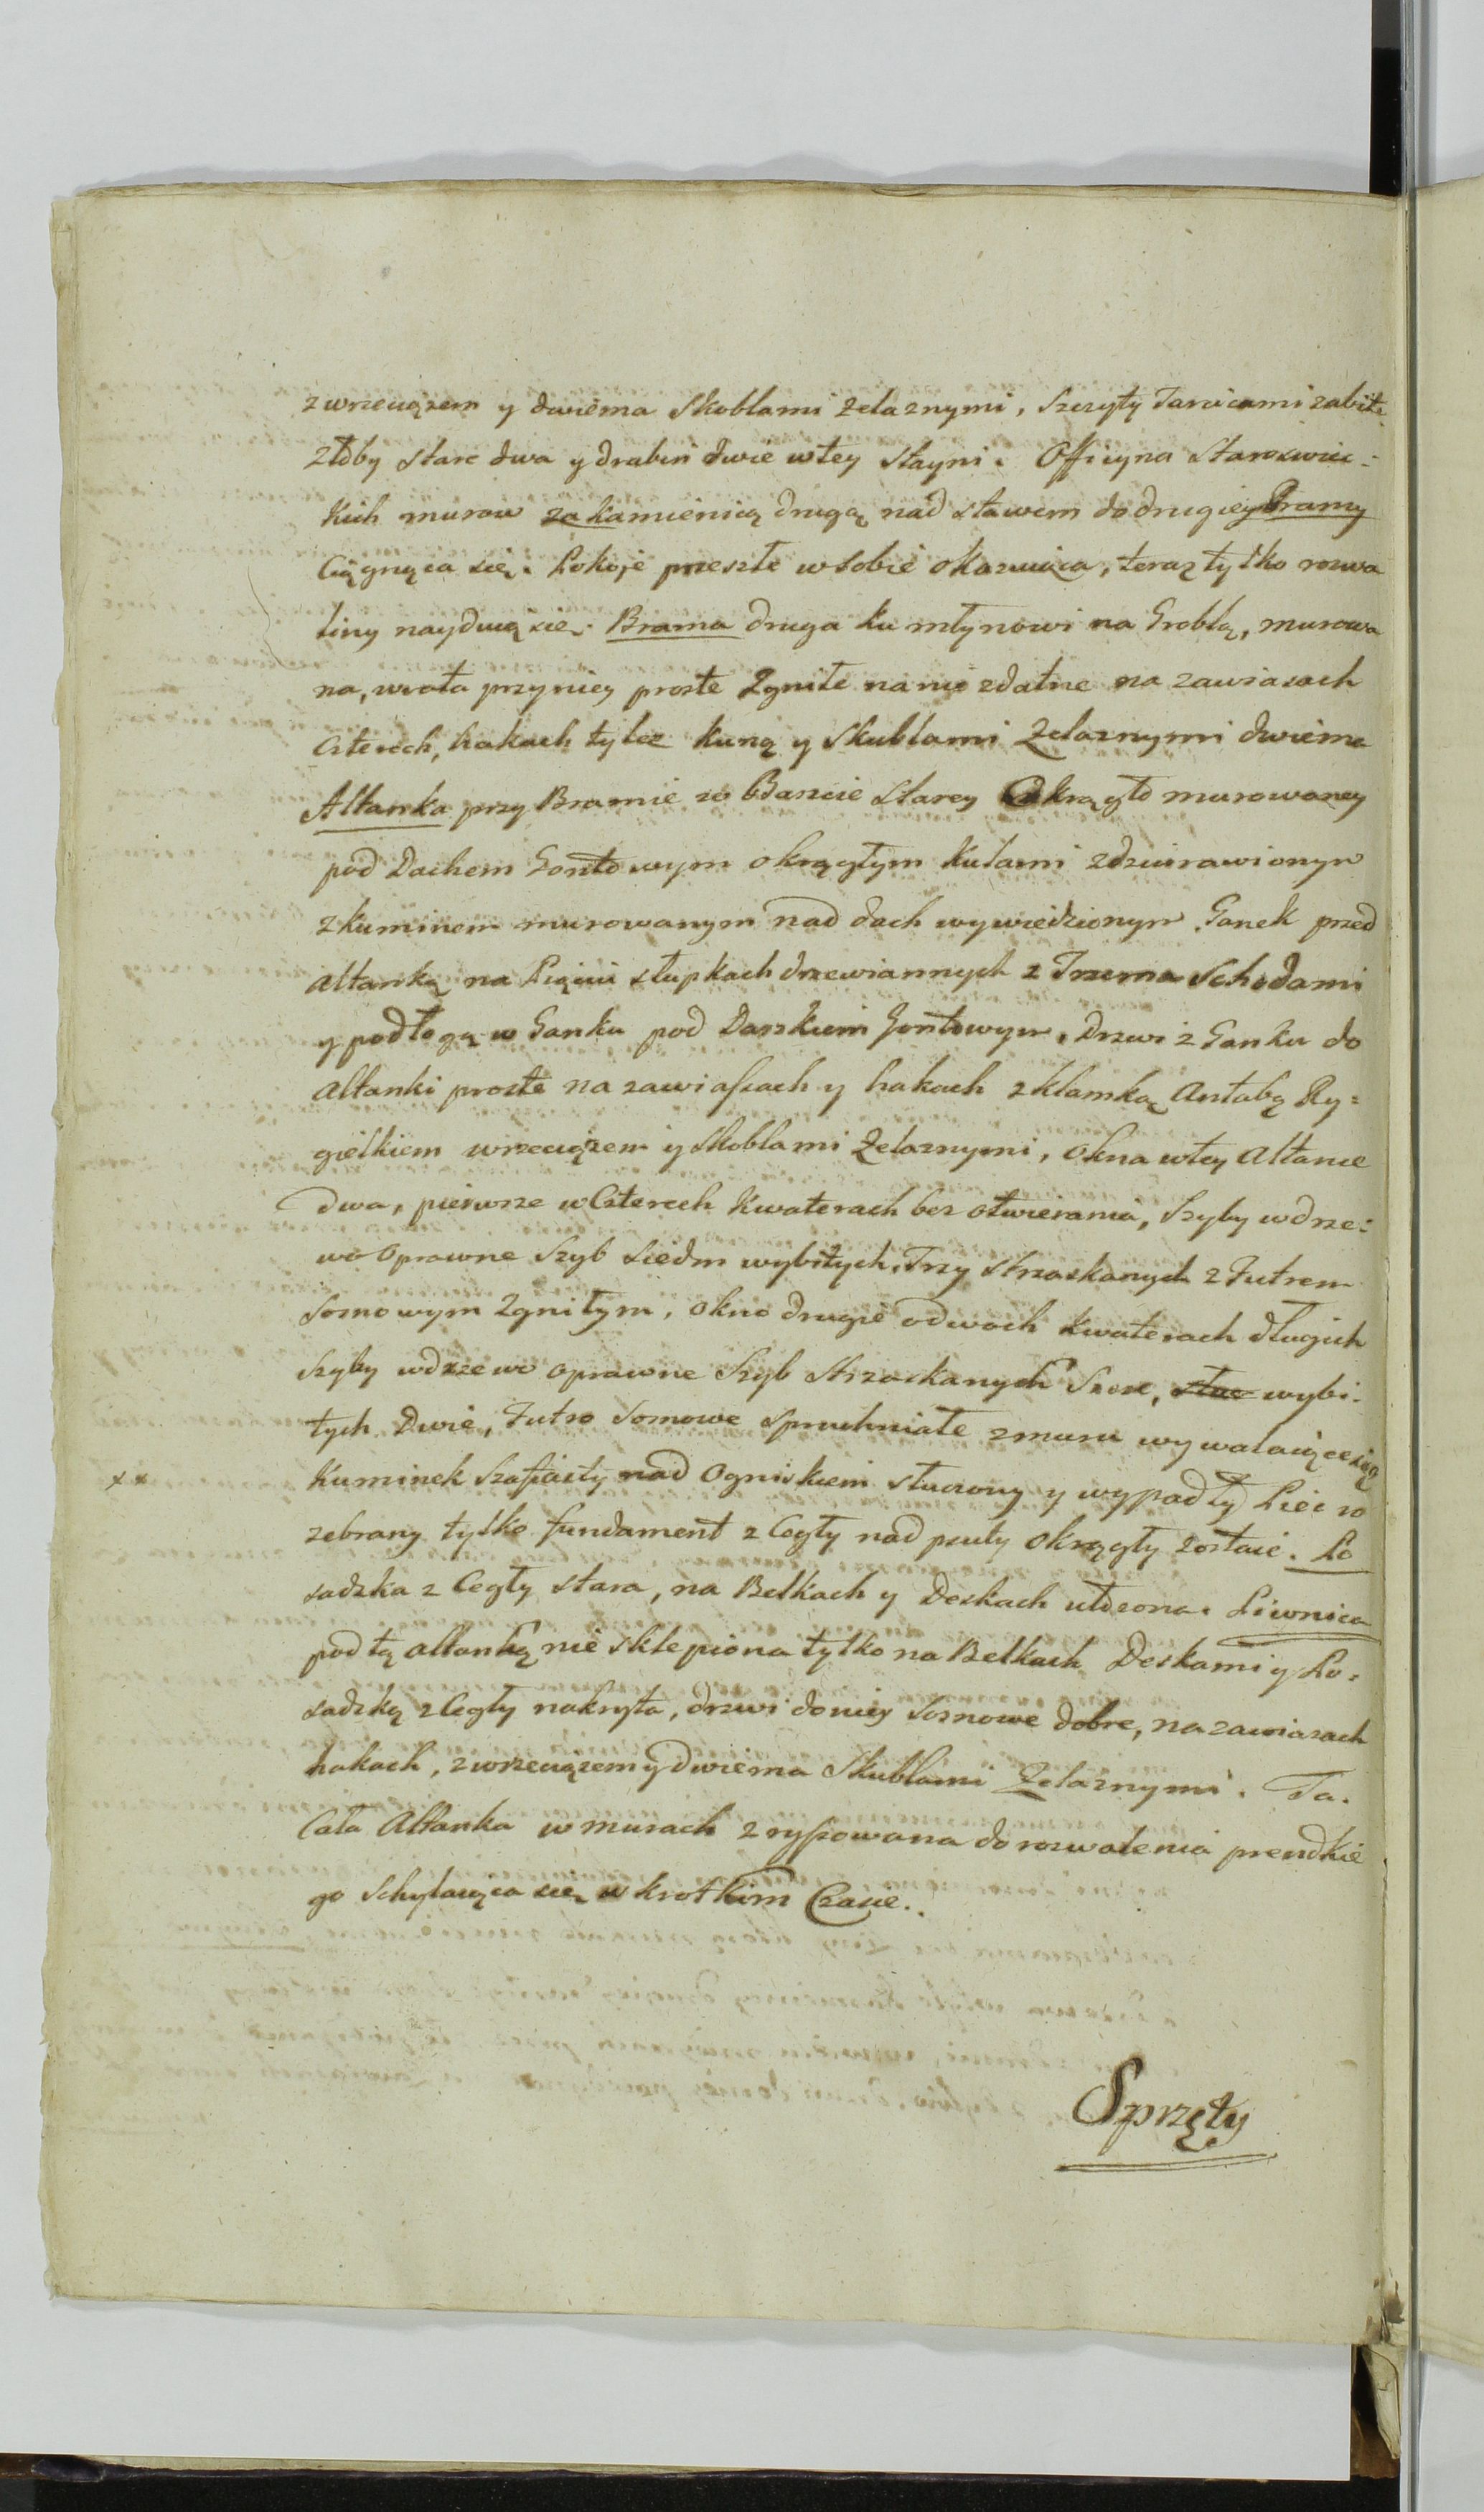 z wrzeciązem y dwiema Skoblami żelaznymi, Szczyty Tarcicami zabite
żłoby stare dwa y drabin dwie w tey stayni. Officyna Staroswiec:
kich murow za kamienicą drugą nad stawem do drugiey Bramy
Ciągnąca się. Pokoje przeszłe w sobie okazuiąca, teraz tylko rozwa
liny nayduią się. Brama druga ku młynowi na Groblą, murowa
na, wrota przy niey proste Zgniłe na nic zdatne na zawiasach
Czterech, hakach tylez kuną y Skublami Żelaznymi dwiema
Altanka przy Bramie w Baszcie starey Okrągło murowaney
pod Dachem Gontowym okrągłym kulami zdziurawionym
z kuminem murowanym nad dach wywiedzionym. Ganek przed
altanką na Pięciu słupkach drzewiannych z Trzema Schodami
y podłogą w Ganku pod Daszkiem Gontowym, Drzwi z Ganku do
Altanki proste na zawiasach y hakach z klamką Antabą Ry=
gielkiem wrzeciązem y Skoblami Żelaznymi, Okna w tey Altance
Dwa, pierwsze w Czterech Kwaterach bez otwierania, Szyby w drze=
wo Oprawne Szyb siedm wybitych, Trzy strzaskanych z Futrem
Sosnowym Zgniłym, Okno drugie o dwoch kwaterach długich
Szyby w drzewo oprawne Szyb Strzaskanych Szesc, wybi:
tych Dwie, Futro Sosnowe Spruchniałe z muru wywalaiące się
x x Kuminek Szafiasty nad Ogniskiem stłuczony y wypadły Piec ro
zebrany tylko fundament z Cegły nad psuty okrągły zostaie. Po
sadzka z Cegły stara, na Belkach y Deskach ułożona. Piwnica
pod tą altanką nie sklepiona tylko na Belkach Deskami y Po=
sadzką z Cegły nakryta, drzwi do niey Sosnowe dobre, na zawiasach
hakach, z wrzeciązem y Dwiema Skublami Żelaznymi. Ta
Cała Altanka w murach zrysowana do rozwalenia prendkie
go Schylaiąca się w krotkim Czasie.
Sprzęty